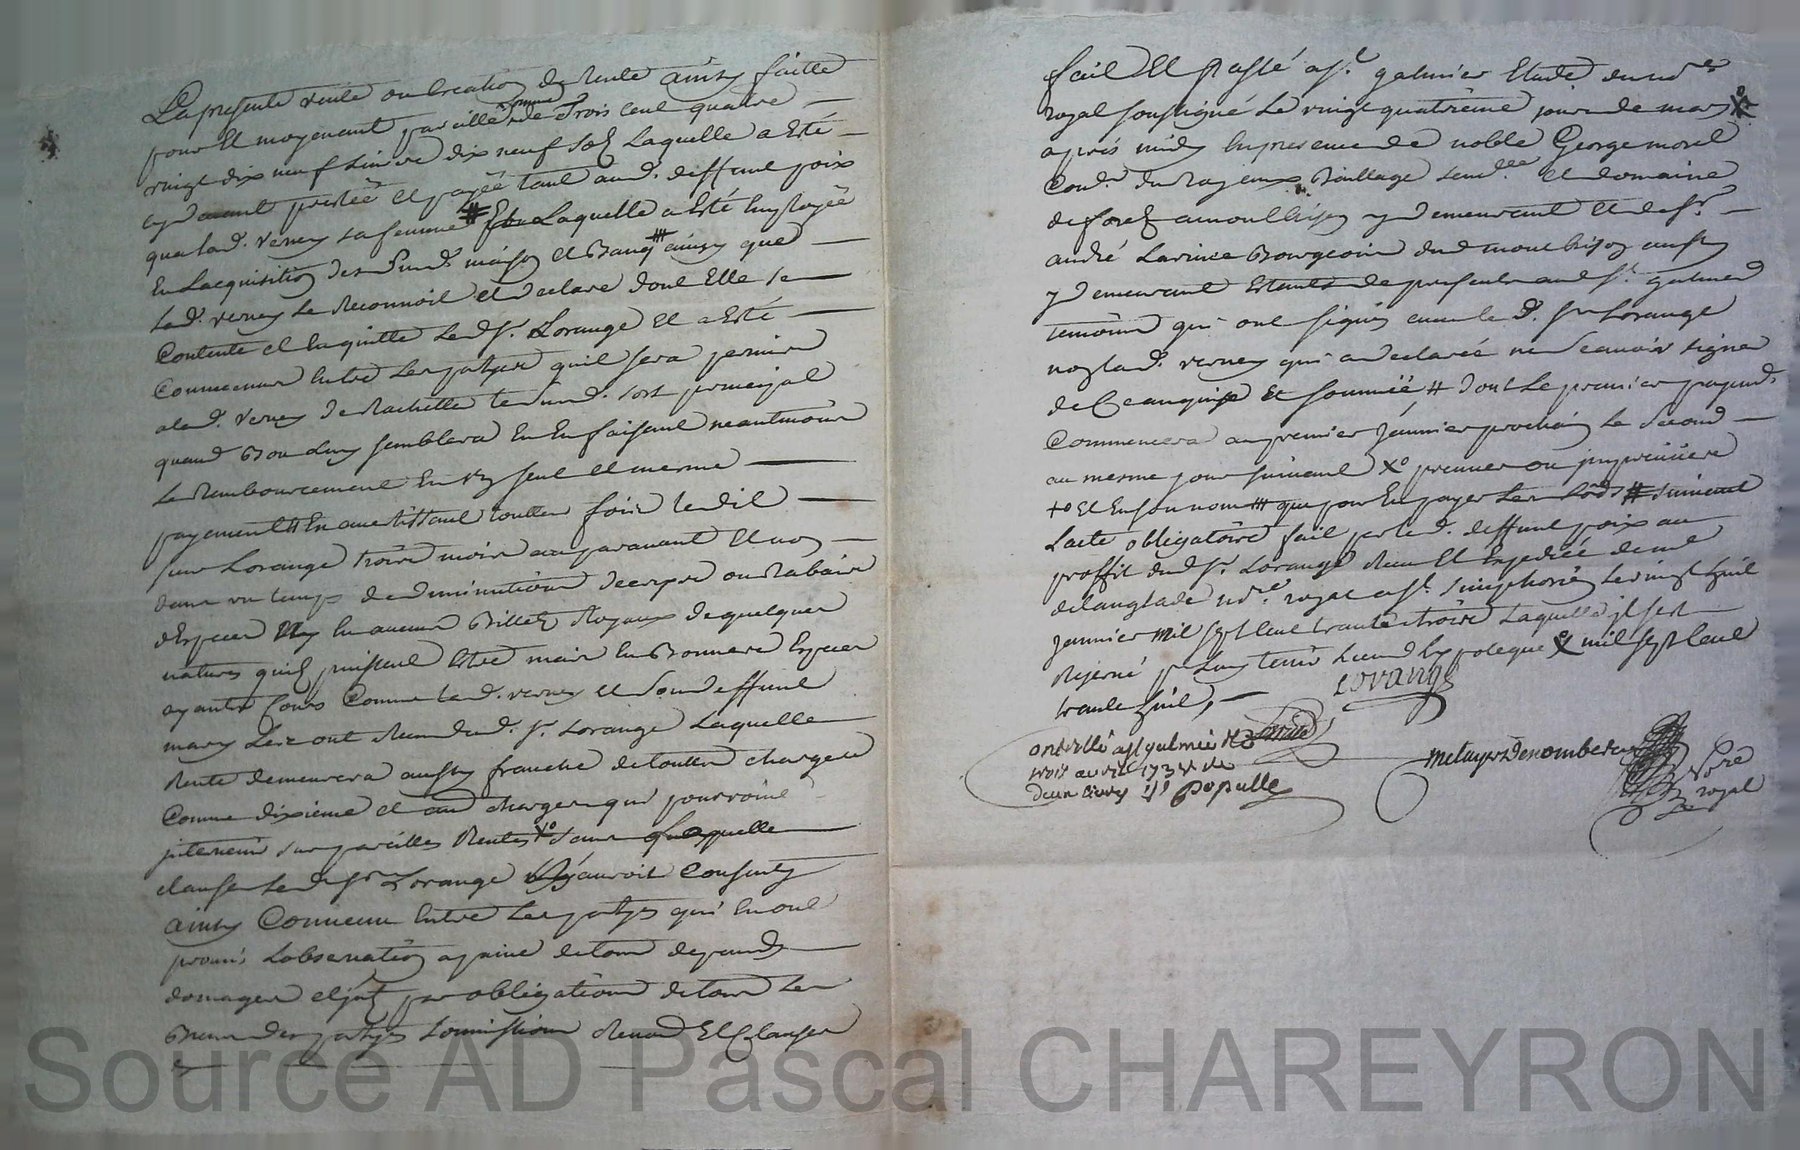 La presente vente ou creation de Rente ainsy faitte
pour Et moyenant pareille somme de Trois cent quatre
vingt dix neuf Livre dix neuf sols Laquelle a Esté
cydevant prestée Et payée tant aud. deffunt poix
que lad. verney sa femme # Laquelle a Esté Employée
En Lacquisition des Susd. maison et Bang # ainsy que
Lad. verney Le Reconnoit et declare dont Elle se
Contente et En quitte Led. Sr. Lorange Et a Esté
Convenu Entre Les partyes quil sera permis
a lad. verney de Rachetter le susd. sort principal
quand Bon Luy semblera En En faisant neantmoins
Le Remboursement En un seul et mesme
payement # En avertissant touttes fois le dit
sieur Lorange trois mois auparavant Et non
dans un temps de diminutions despece ou Rabais
dEspeces Ny En aucuns Billets Royaux de quelques
natures quils puissent Estre mais En Bonnes Especes
ayants Cours Comme lad. verney et Son deffunt
mary Les ont Receu dud. Sr. Lorange Laquelle
Rente demeurera aussy franche de touttes charges
Comme dixieme et autres charges qui pourroint
intervenir sur pareilles Rentes X° sans Laquelle
clause led. Sr Lorange auroit Consenty
ainsy Convenu Entre Les partyes qui En ont
promis Lobservation a peine de tous depends
domages et jnts par obligations de tous Les
Biens des partyes soumissions Renon. Et Clauses
fait Et Passé a St. galmier Etude du nore
royal soussigné Le vingt quatrieme jour de mars X°
apres midy En presence de noble George morel
Cond. du Roy aux Bailliage senec. Et domaine
de forez a montbrison y demeurant Et de Sr.
andré Larivee Bourgeois dud montbrison aussy
y demeurant Estants de presents aud St. galmier
temoins qui ont signés avec le d. Sr Lorange
non lad. verney qui a declarée ne Scavoir signer
de Ce enquise Et sommée # dont Le premier payemt.
Commencera au premier Janvier prochain Le Second
au mesme jour suivant X° premier ou
+° Et En son nom # que pour En payer Les Lods # suivant
Lacte obligatoire fait par led. deffunt poix au
proffit dud Sr. Lorange Receu Et Expediée de me
delanglade nore. royal a St. Simphorien Le vingt huit
Janvier mil sept Cent trante trois Laquelle il sest
Reservé pr Luy tenir Lieu dhypoteque X mil sept Cent
trante huit,
Lorange
ontrollé a St galmier le
trois avril 1738
deux livres 8s Populle
metayer Denombeau
Nore
royal